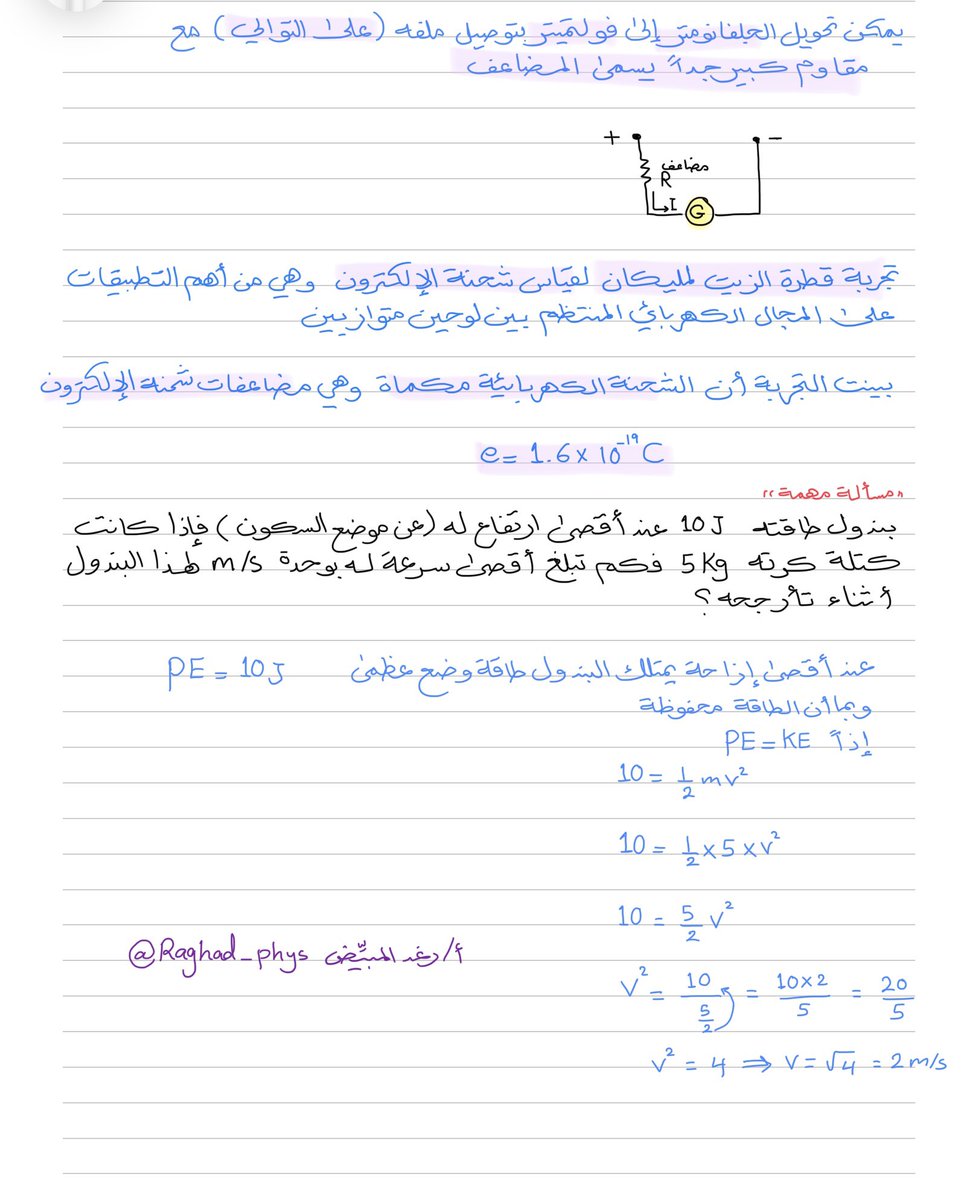 يمكن تحويل الجلفانومتر إلى فولتميتر بتوصيل ملفه (على التوالي) مع
مقاوم كبير جداً يسمى المضاعف
+ -
مضاعف
R
I G
تجربة قطرة الزيت لمليكان لقياس شحنة الإلكترون وهي من أهم التطبيقات
على المجال الكهربائي المنتظم بين لوحين متوازيين
بينت التجربة أن الشحنة الكهربائية مكماة وهي مضاعفات شحنة الإلكترون
e = 1.6 × 10⁻¹⁹ C
"مسألة مهمة"
بندول طاقته 10 J عند أقصى ارتفاع له (عن موضع السكون) فإذا كانت
كتلة كرته 5 Kg فكم تبلغ أقصى سرعة له بوحدة m/s لهذا البندول
أثناء تأرجحه؟
عند أقصى إزاحة يمتلك البندول طاقة وضع عظمى PE = 10 J
وبما أن الطاقة محفوظة
إذاً PE = KE
10 = 1/2 mv²
10 = 1/2 × 5 × v²
10 = 5/2 v²
أ/رغد المبيّض @Raghad_phys
v² = 10/(5/2) = 10×2/5 = 20/5
v² = 4 ⇒ v = √4 = 2 m/s